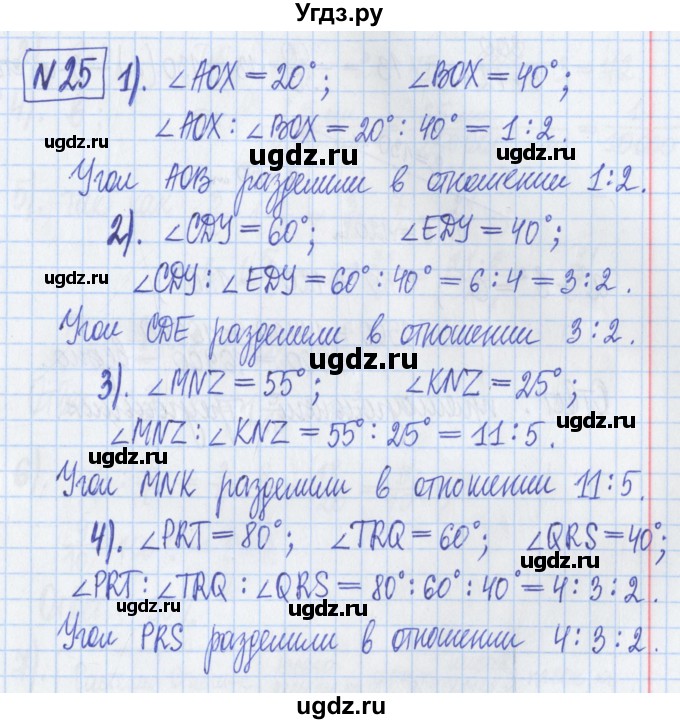 Угдз.ру
№25 1). ∠AOX = 20°; ∠BOX = 40°;
∠AOX : ∠BOX = 20° : 40° = 1 : 2.
ugdz.ru
ugdz.ru
ugdz.ru
Угол AOB разделили в отношении 1:2.
2). ∠CDY = 60°; ∠EDY = 40°;
ugdz.ru
ugdz.ru
∠CDY : ∠EDY = 60° : 40° = 6 : 4 = 3 : 2.
Угол CDE разделили в отношении 3:2.
ugdz.ru
3). ∠MNZ = 55°; ∠KNZ = 25°;
∠MNZ : ∠KNZ = 55° : 25° = 11 : 5.
ugdz.ru
ugdz.ru
Угол MNK разделили в отношении 11:5.
4). ∠PRT = 80°; ∠TRQ = 60°; ∠QRS = 40°;
ugdz.ru
∠PRT : ∠TRQ : ∠QRS = 80° : 60° : 40° = 4 : 3 : 2.
ugdz.ru
ugdz.ru
Угол PRS разделили в отношении 4:3:2.
ugdz.ru